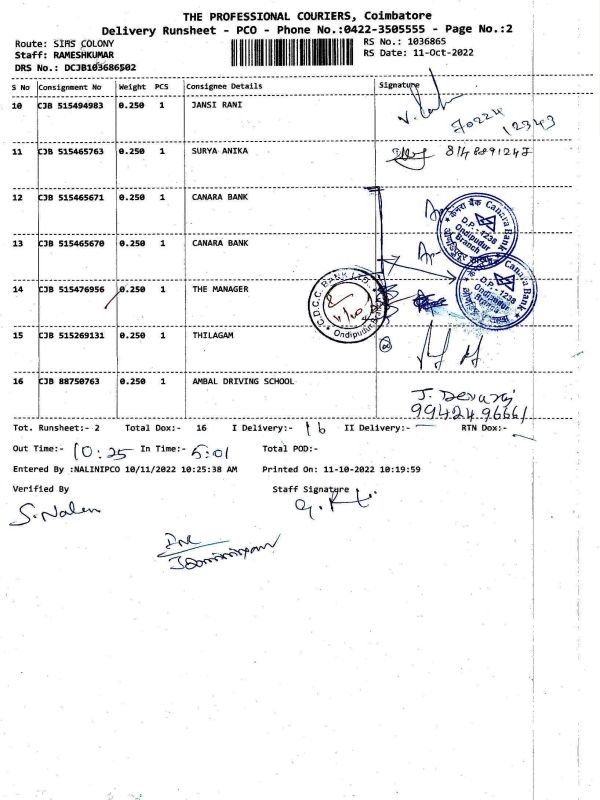 THE PROFESSIONAL COURIERS, Coimbatore
Delivery Runsheet - PCO - Phone No.:0422-3505555 - Page No.:2
Route: SIHS COLONY
RS No.: 1036865
Staff: RAMESHKUMAR
RS Date: 11-Oct-2022
DRS No.: DCJB103686502
S No Consignment No Weight PCS Consignee Details Signature
10 CJB 515494983 0.250 1 JANSI RANI
70224
12343
11 CJB 515465763 0.250 1 SURYA ANIKA 8148891247
12 CJB 515465671 0.250 1 CANARA BANK
केनरा बैंक Canara Bank
D.P.- 1238
Ondipudur
Branch
13 CJB 515465670 0.250 1 CANARA BANK
Canara Bank
D.P.- 1238
Ondipudur
Branch
14 CJB 515476956 0.250 1 THE MANAGER
C.D.C.C. BANK LTD.
Ondipudur
15 CJB 515269131 0.250 1 THILAGAM
16 CJB 88750763 0.250 1 AMBAL DRIVING SCHOOL
J. Devaraj
9942496661
Tot. Runsheet:- 2 Total Dox:- 16 I Delivery:- 16 II Delivery:- - RTN Dox:- -
Out Time:- 10:25 In Time:- 5:01 Total POD:-
Entered By :NALINIPCO 10/11/2022 10:25:38 AM Printed On: 11-10-2022 10:19:59
Verified By Staff Signature
S. Nalen